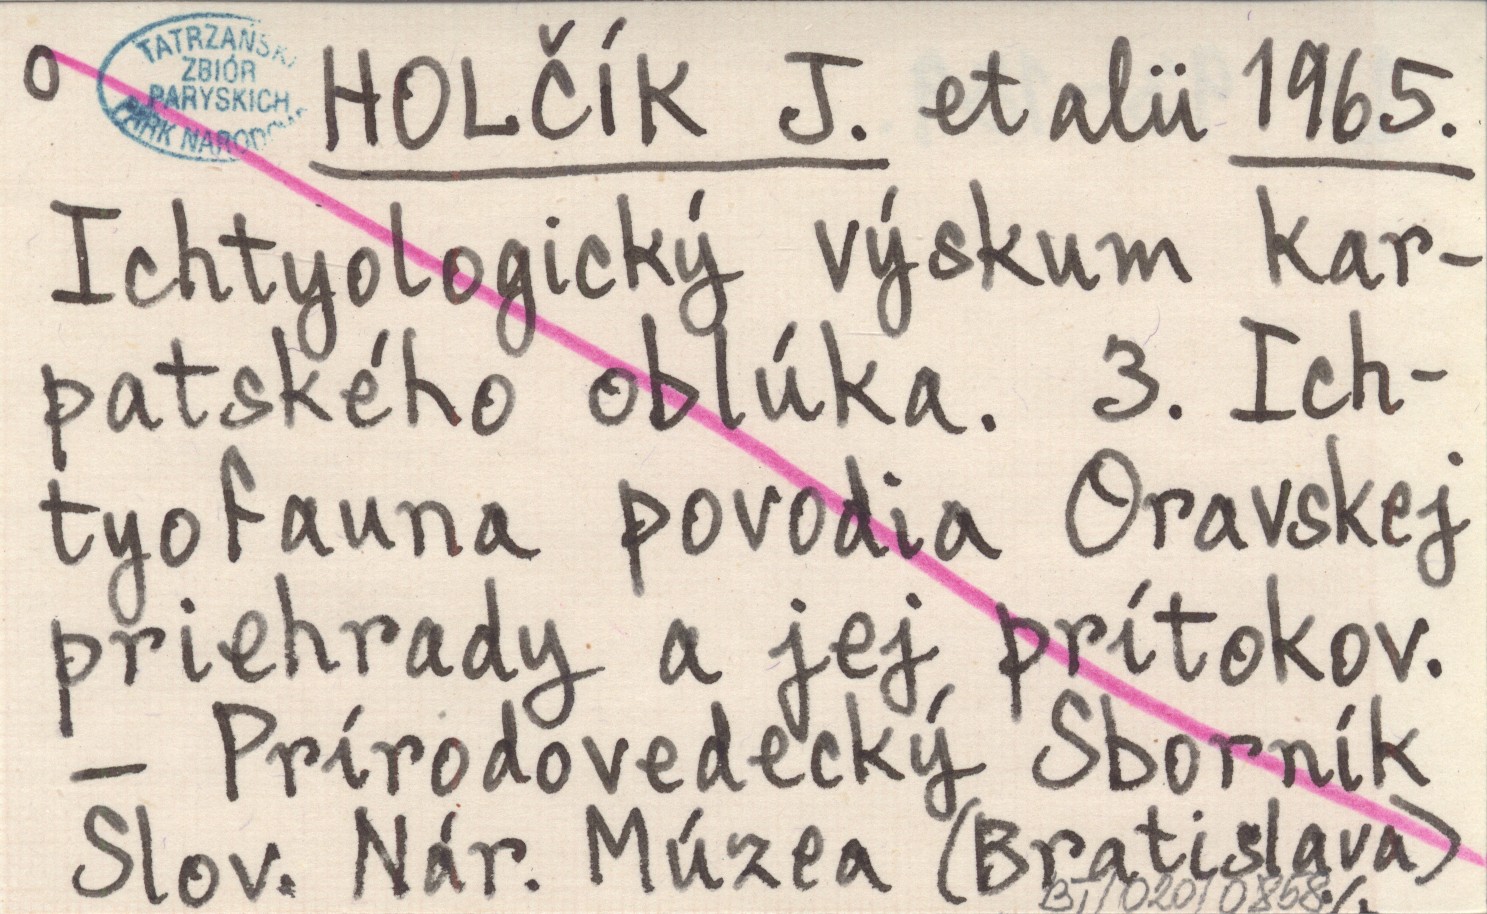 o
TATRZAŃSKI
ZBIÓR
PARYSKICH
PARK NARODOWY
HOLČÍK J. et alii 1965.
Ichtyologický výskum kar-
patského oblúka. 3. Ich-
tyofauna povodia Oravskej
priehrady a jej prítokov.
– Prírodovedecký Sborník
Slov. Nár. Múzea (Bratislava)
BT/020/0868